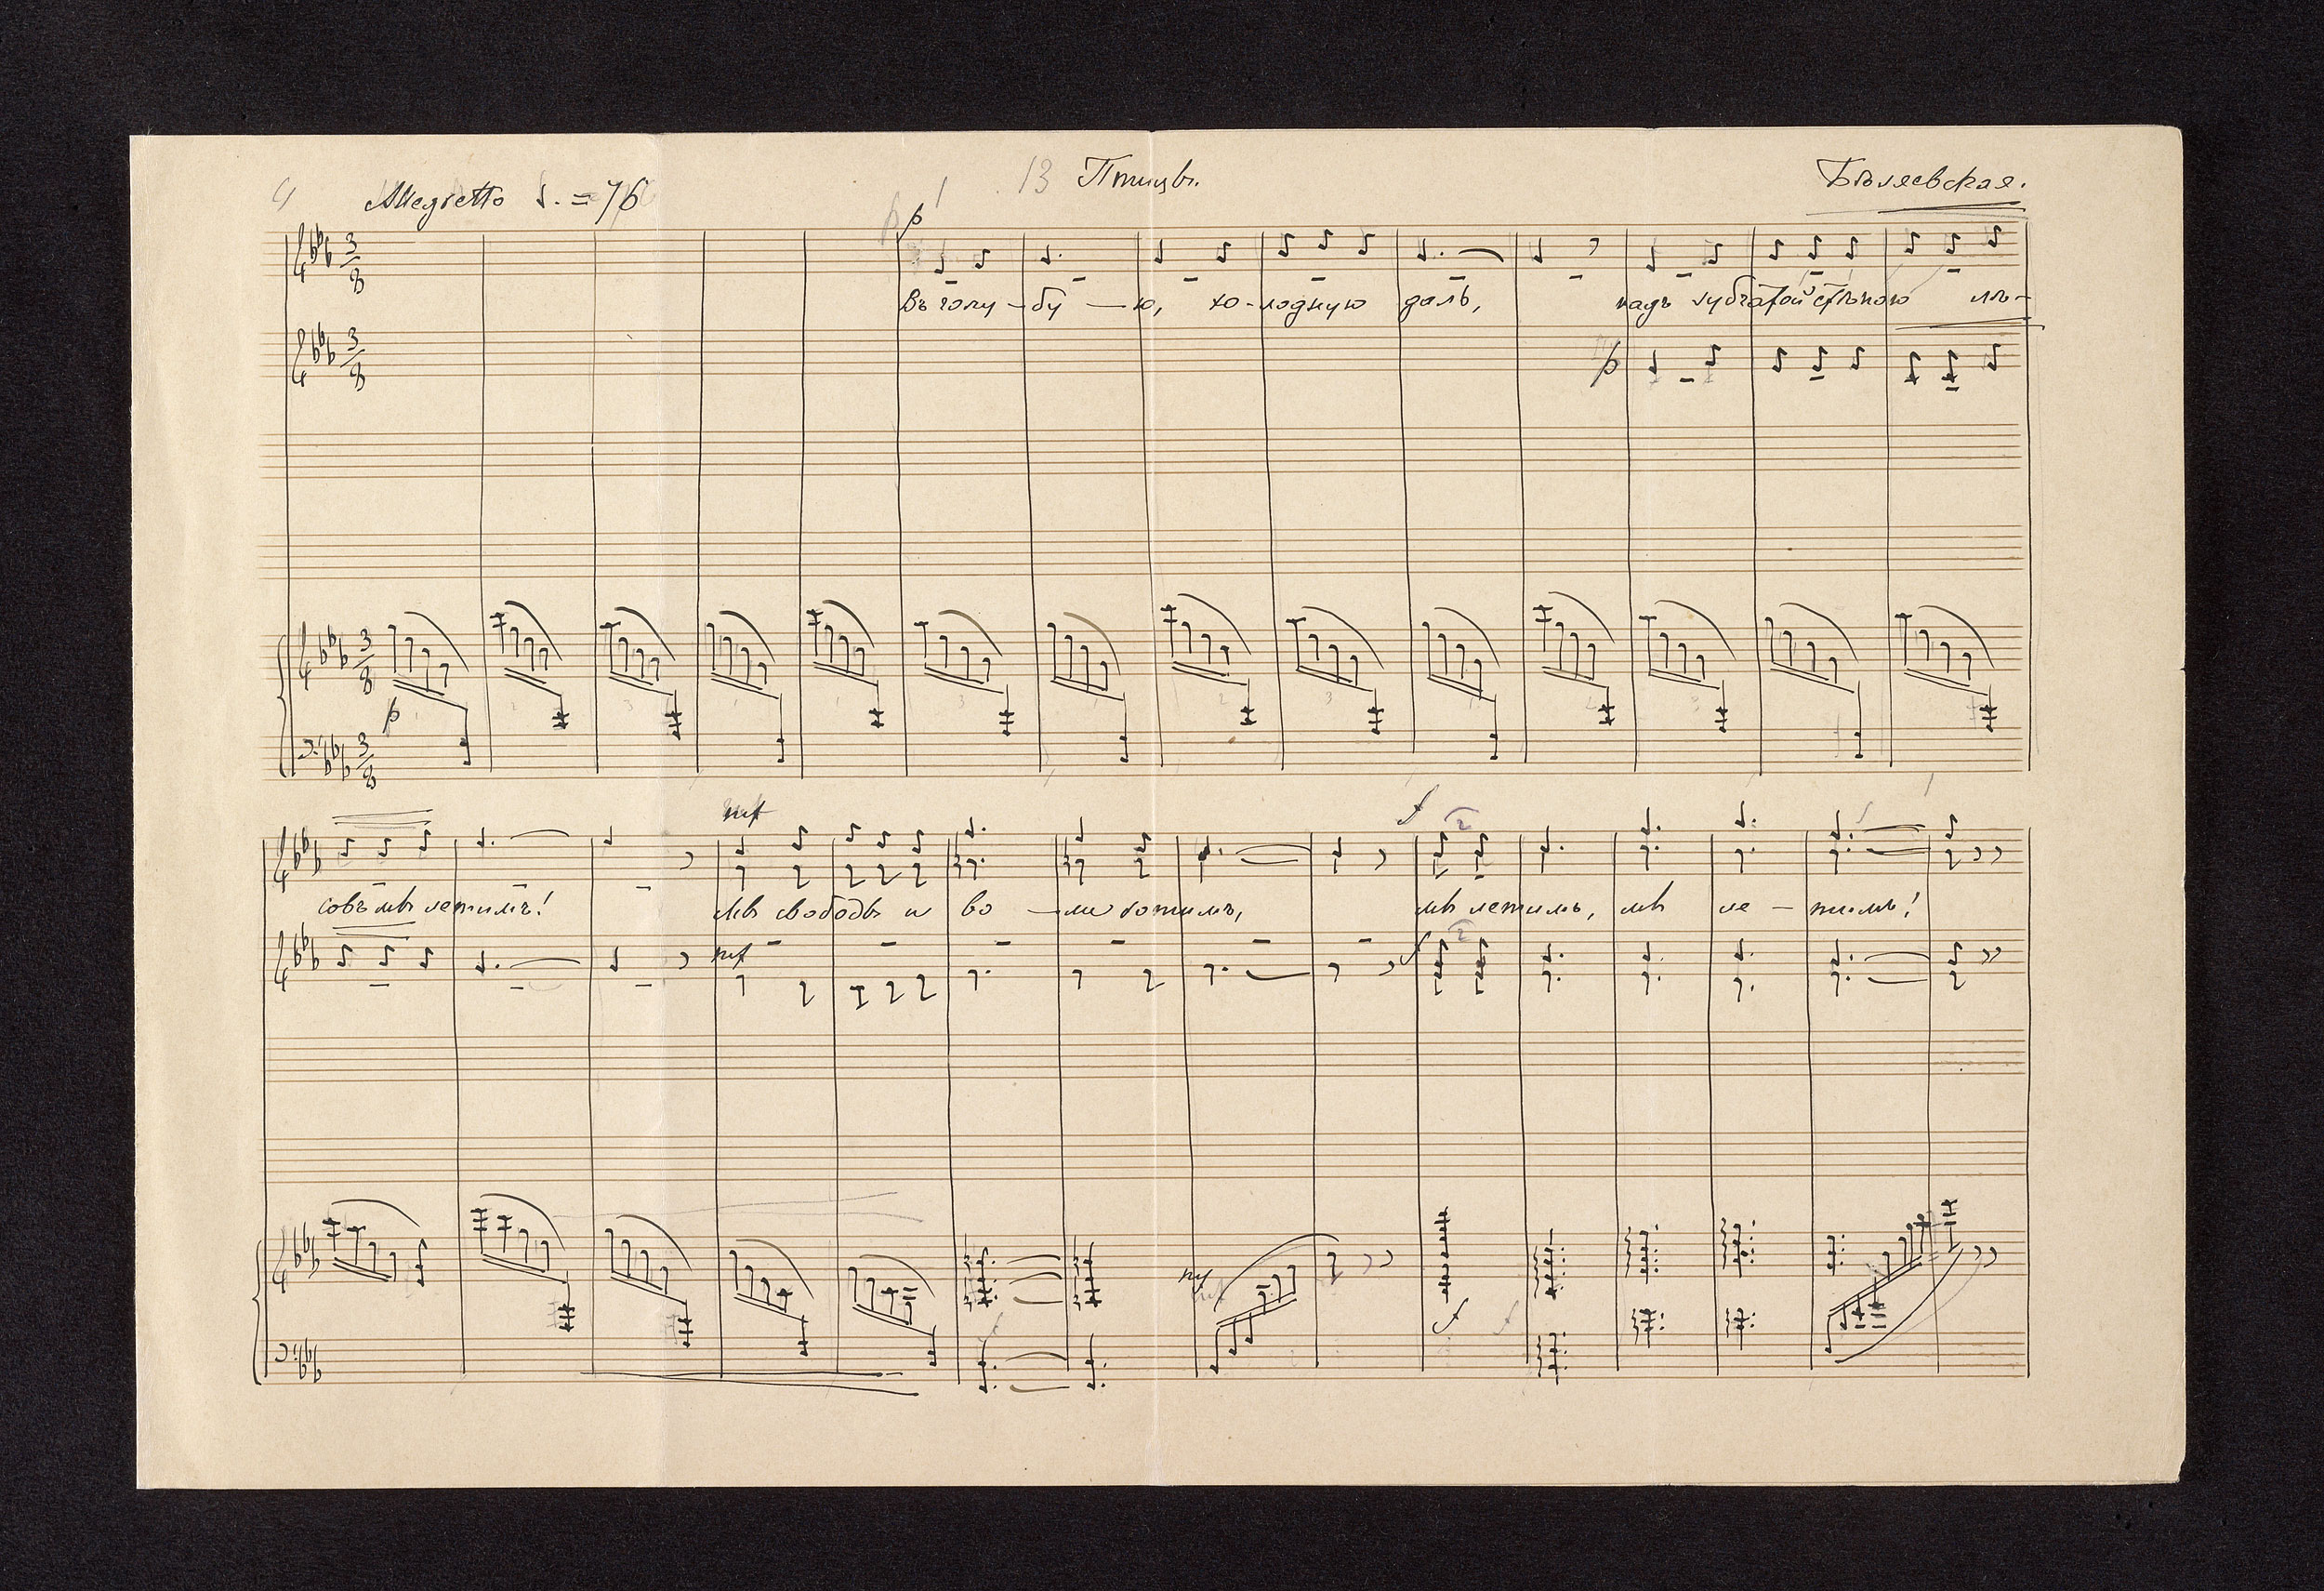 4 Allegretto ♩. = 76 13 Птицы. Бѣляевская.
p
3/8
Въ голу - бу - ю, хо-лодную даль, надъ зубчатой стѣною лѣ-
3/8 p
3/8
p
3/8
mf f 2
совъ мы летимъ! Мы свободы и во - ли хотимъ, мы летимъ, мы ле - тимъ!
mf f 2
mf f f